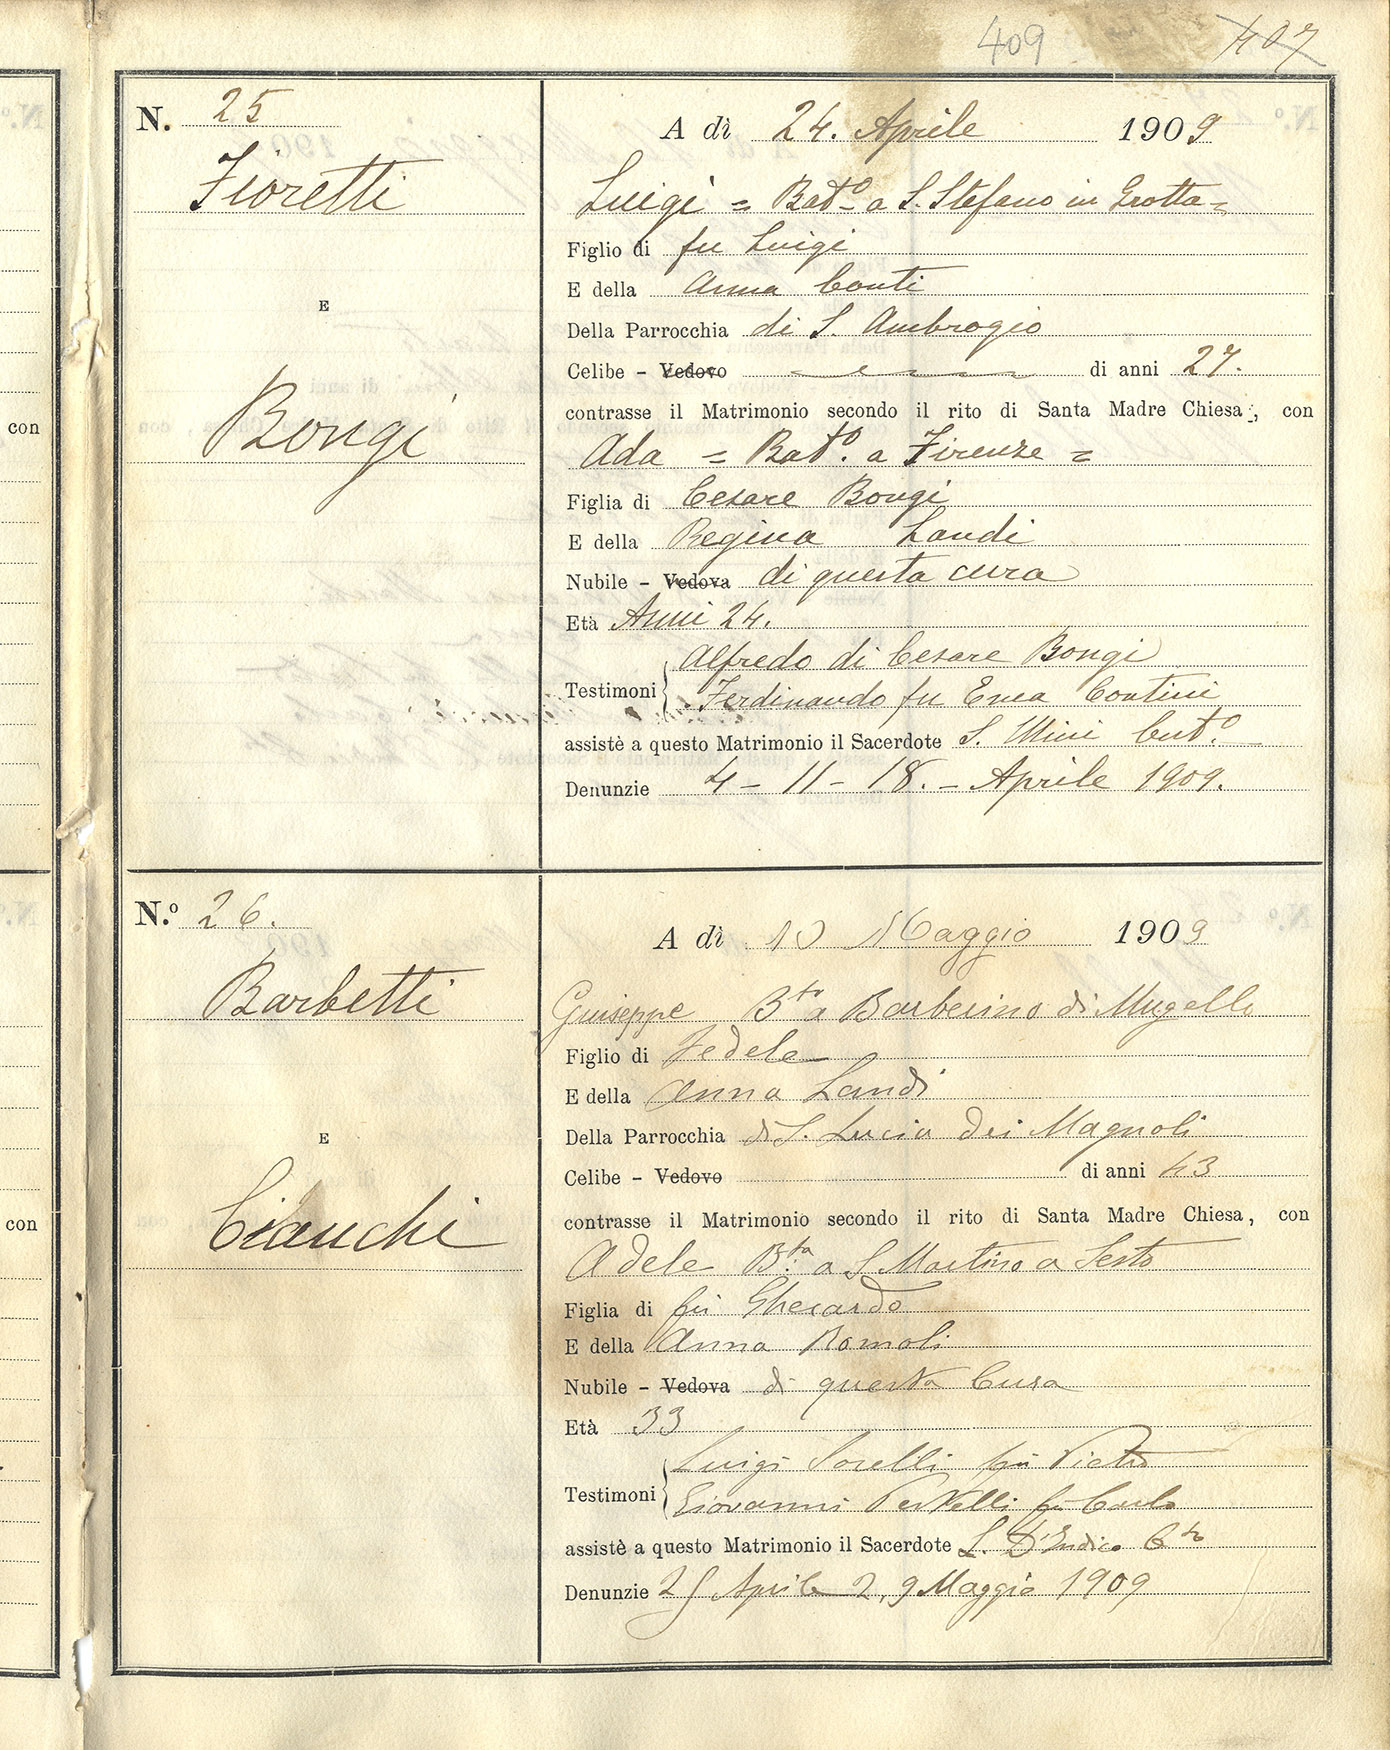 409 407
N. 25
Fioretti
E
Bongi
A dì 24. Aprile 1909
Luigi = Bat.º a S. Stefano in Grotta=
Figlio di fu Luigi
E della Anna Conti
Della Parrocchia di S. Ambrogio
Celibe - Vedovo di anni 27.
contrasse il Matrimonio secondo il rito di Santa Madre Chiesa, con
Ada = Bat.º a Firenze =
Figlia di Cesare Bongi
E della Regina Landi
Nubile - Vedova di questa cura
Età Anni 24.
Testimoni { Alfredo di Cesare Bongi
Ferdinando fu Enea Contini
assistè a questo Matrimonio il Sacerdote S. Mini Curt.º
Denunzie 4 - 11 - 18. - Aprile 1909.
N.º 26.
Barbetti
E
Cianchi
A dì 10 Maggio 1909
Giuseppe B.to a Barberino di Mugello
Figlio di Fedele
E della Anna Landi
Della Parrocchia di S. Lucia dei Magnoli
Celibe - Vedovo di anni 43
contrasse il Matrimonio secondo il rito di Santa Madre Chiesa, con
Adele B.ta a S Martino a Sesto
Figlia di fu Gherardo
E della Anna Romoli
Nubile - Vedova di questa Cura
Età 33
Testimoni { Luigi fu Pietro
Giovanni fu Carlo
assistè a questo Matrimonio il Sacerdote L. D'Indico C.to
Denunzie 25 Aprile 2, 9 Maggio 1909
con
con